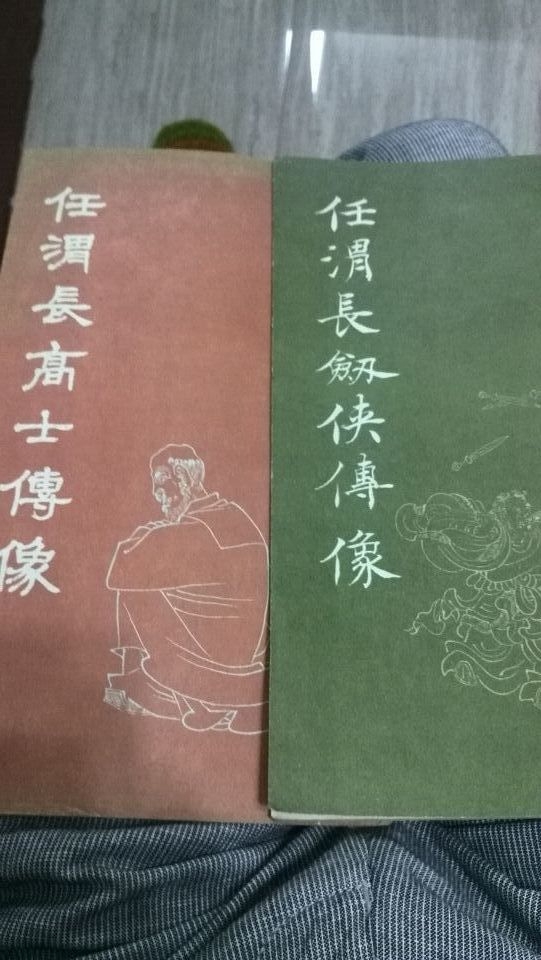 任渭長高士傳像
任渭長劔俠傳像